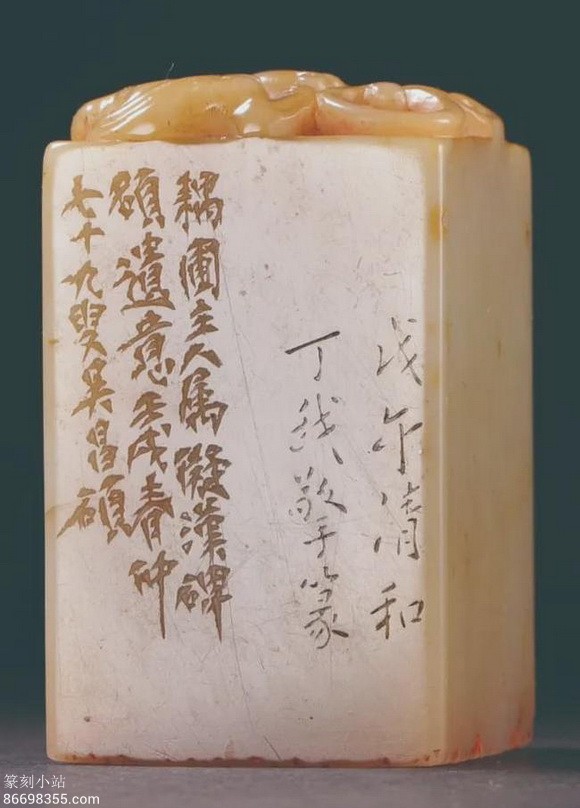 戊午清和
丁敬手篆
耦圃主人属擬漢碑
額遺意壬戌春仲
七十九叟吴昌碩
篆刻小站
86698355.com